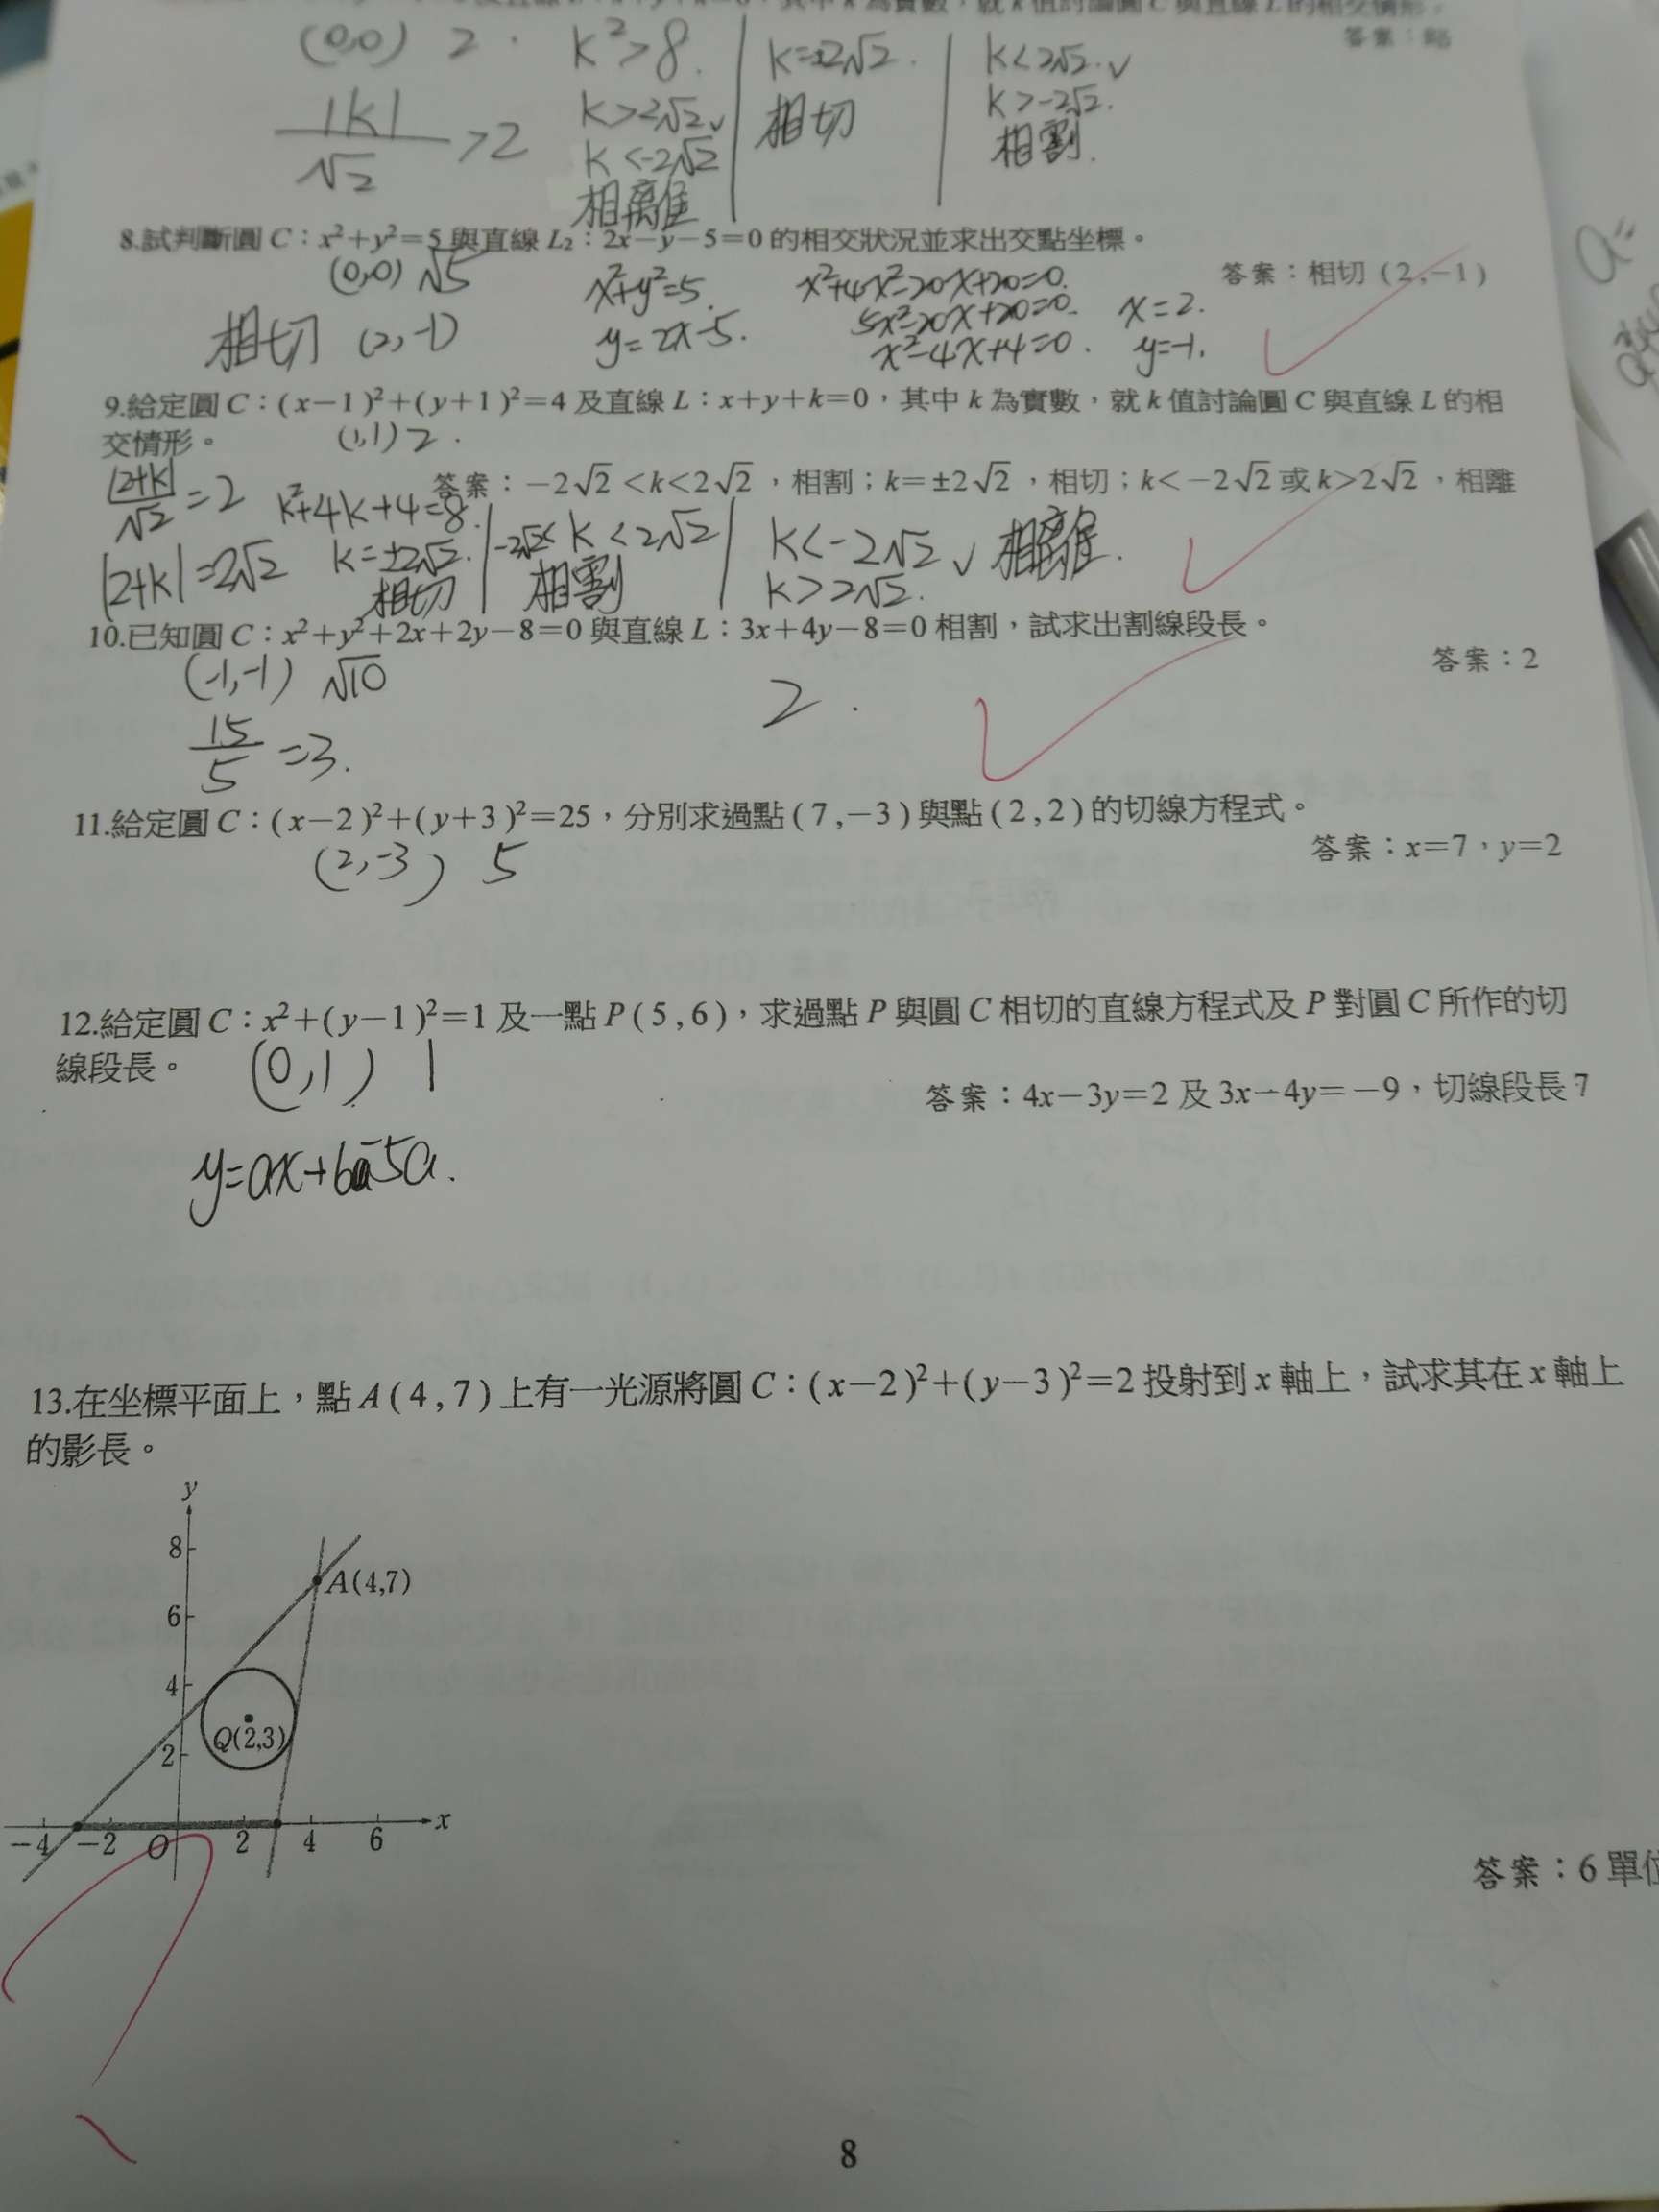 (0,0) 2 .
k²>8.
k=±2√2.
k<2√2.✓
答案：略
|k|/√2 >2
k>2√2✓
k<-2√2
相離
相切
k>-2√2.
相割.
8.試判斷圓 C：x²+y²=5 與直線 L₂：2x−y−5=0 的相交狀況並求出交點坐標。
答案：相切 (2,−1)
(0,0) √5
x²+y²=5.
y=2x-5.
x²+4x²-20x+20=0.
5x²-20x+20=0.
x²-4x+4=0.
x=2.
y=-1.
相切 (2,-1)
9.給定圓 C：(x−1)²+(y+1)²=4 及直線 L：x+y+k=0，其中 k 為實數，就 k 值討論圓 C 與直線 L 的相
交情形。
(1,1) 2 .
答案：−2√2<k<2√2，相割；k=±2√2，相切；k<−2√2或k>2√2，相離
|2+k|/√2 =2
k²+4k+4=8.
|2+k|=2√2
k=±2√2.
相切
-2√2< k <2√2
相割
k<-2√2 ✓ 相離.
k>2√2.
10.已知圓 C：x²+y²+2x+2y−8=0 與直線 L：3x+4y−8=0 相割，試求出割線段長。
答案：2
(-1,-1) √10
15/5 =3.
2 .
11.給定圓 C：(x−2)²+(y+3)²=25，分別求過點 (7,−3) 與點 (2,2) 的切線方程式。
答案：x=7，y=2
(2,-3) 5
12.給定圓 C：x²+(y−1)²=1 及一點 P(5,6)，求過點 P 與圓 C 相切的直線方程式及 P 對圓 C 所作的切
線段長。
(0,1) 1
答案：4x−3y=2 及 3x−4y=−9，切線段長 7
y=ax+6-5a.
13.在坐標平面上，點 A(4,7) 上有一光源將圓 C：(x−2)²+(y−3)²=2 投射到 x 軸上，試求其在 x 軸上
的影長。
y
8
A(4,7)
6
4
Q(2,3)
2
x
−4 −2 O 2 4 6
答案：6 單位
8